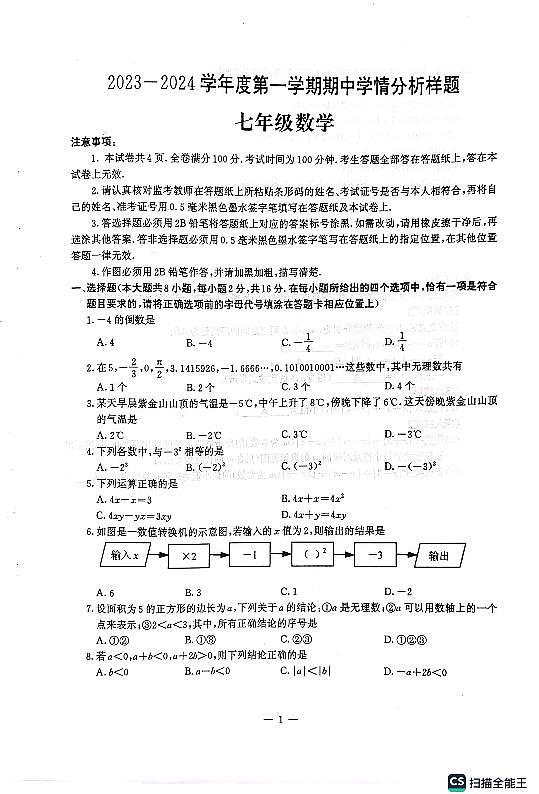 2023—2024学年度第一学期期中学情分析样题
七年级数学
注意事项:
1. 本试卷共4页.全卷满分100分.考试时间为100分钟.考生答题全部答在答题纸上,答在本
试卷上无效.
2. 请认真核对监考教师在答题纸上所粘贴条形码的姓名、考试证号是否与本人相符合,再将自
己的姓名、准考证号用0.5毫米黑色墨水签字笔填写在答题纸及本试卷上.
3. 答选择题必须用2B铅笔将答题纸上对应的答案标号涂黑.如需改动,请用橡皮擦干净后,再
选涂其他答案.答非选择题必须用0.5毫米黑色墨水签字笔写在答题纸上的指定位置,在其他位置
答题一律无效.
4. 作图必须用2B铅笔作答,并请加黑加粗,描写清楚.
一、选择题(本大题共8小题,每小题2分,共16分.在每小题所给出的四个选项中,恰有一项是符合
题目要求的,请将正确选项前的字母代号填涂在答题卡相应位置上)
1. -4的倒数是
A. 4 B. -4 C. -1/4 D. 1/4
2. 在5,-2/3,0,π/2,3.1415926,-1.6666…,0.1010010001…这些数中,其中无理数共有
A. 1个 B. 2个 C. 3个 D. 4个
3. 某天早晨紫金山山顶的气温是-5℃,中午上升了8℃,傍晚下降了6℃.这天傍晚紫金山山顶
的气温是
A. 2℃ B. -2℃ C. 3℃ D. -3℃
4. 下列各数中,与-3²相等的是
A. -2³ B. (-2)³ C. (-3)² D. -(-3)²
5. 下列运算正确的是
A. 4x-x=3 B. 4x+x=4x²
C. 4xy-yx=3xy D. 4x+y=4xy
6. 如图是一数值转换机的示意图,若输入的x值为2,则输出的结果是
输入x ×2 -1 ( )² -3 输出
A. 6 B. 3 C. 1 D. -2
7. 设面积为5的正方形的边长为a,下列关于a的结论:①a是无理数;②a可以用数轴上的一个
点来表示;③2<a<3,其中,所有正确结论的序号是
A. ①② B. ①③ C. ②③ D. ①②③
8. 若a<0,a+b<0,a+2b>0,则下列结论正确的是
A. b<0 B. a-b<0 C. |a|<|b| D. -a+2b<0
— 1 —
CS 扫描全能王